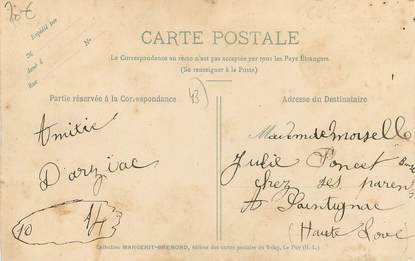 20€
Expédié par
M
demt à
Rue
N°
CARTE POSTALE
La Correspondance au recto n'est pas acceptée par tous les Pays Étrangers
(Se renseigner à la Poste)
Partie réservée à la Correspondance
43)
Adresse du Destinataire
Amitié
D'arziac
10 1/4
Mademoiselle
Julie Poncet
chez ses parent
A Saintignac
(Haute Loire
Collection MARGERIT-BRÉMOND, éditeur des cartes postales du Velay, Le Puy (H.-L.)